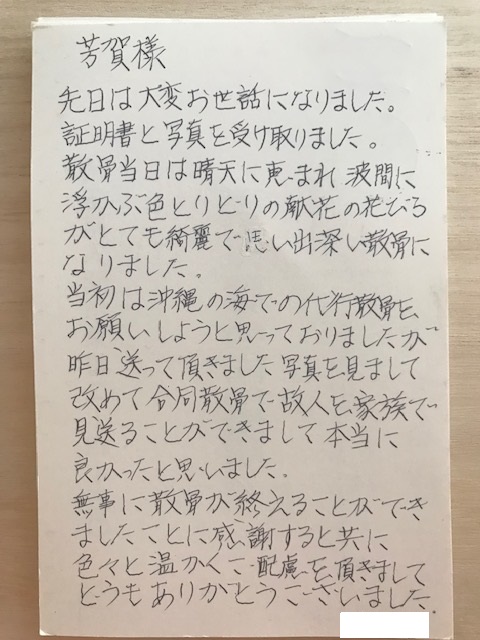 芳賀様
先日は大変お世話になりました。
証明書と写真を受け取りました。
散骨当日は晴天に恵まれ 波間に
浮かぶ色とりどりの献花の花びら
がとても綺麗で思い出深い散骨に
なりました。
当初は沖縄の海での代行散骨を
お願いしようと思っておりましたが
昨日送って頂きました写真を見まして
改めて合同散骨で故人を家族で
見送ることができまして本当に
良かったと思いました。
無事に散骨が終えることができ
ましたことに感謝すると共に
色々と温かくご配慮を頂きまして
とうもありがとうございました。